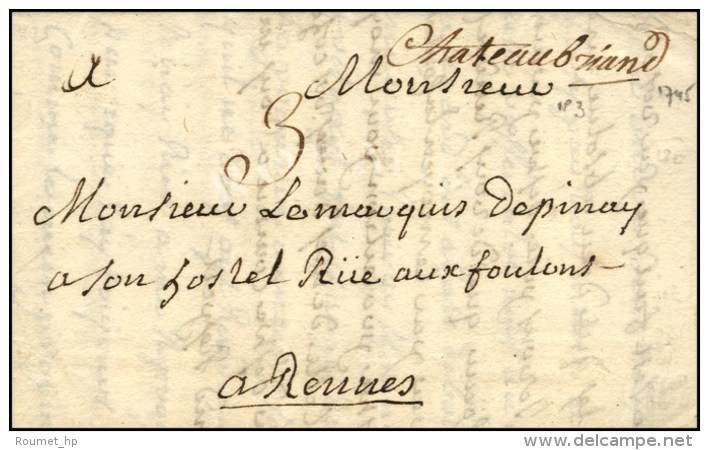 Chateaubriand
a Monsieur
1745
IP 3
3
Monsieur Lemarquis Depinay
a son hostel Rüe aux foulons
a Rennes
Roumet_hp
delcampe.net